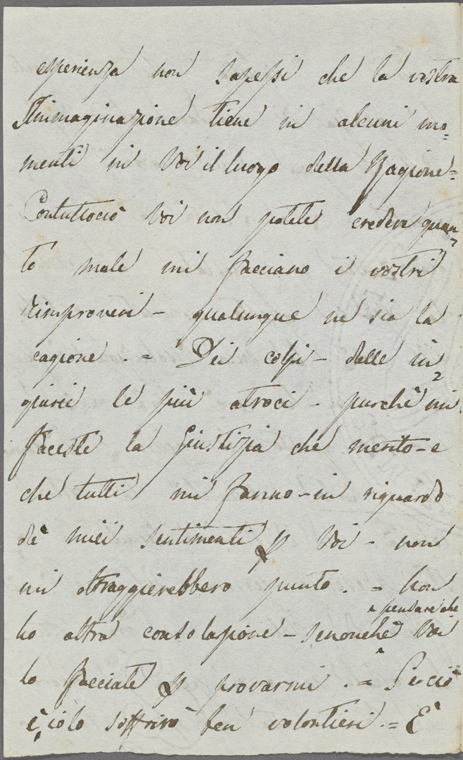 esperienza non sapessi che la vostra
Immaginazione tiene in alcuni mo-
menti in Voi il luogo della Ragione =
Contuttociò Voi non potete credere quan-
to male mi facciano i vostri
rimproveri - qualunque ne sia la
cagione = Dei colpi - delle in
giurie le più atroci - purchè mi
faceste la Giustizia che merito - e
che tutti mi fanno - in riguardo
de' miei sentimenti p Voi - non
mi oltraggierebbero punto. = Non
a pensare che
ho altra consolazione - senonchè Voi
lo facciate p provarmi. = Se ciò
è, io lo soffrirò ben volontieri. = È